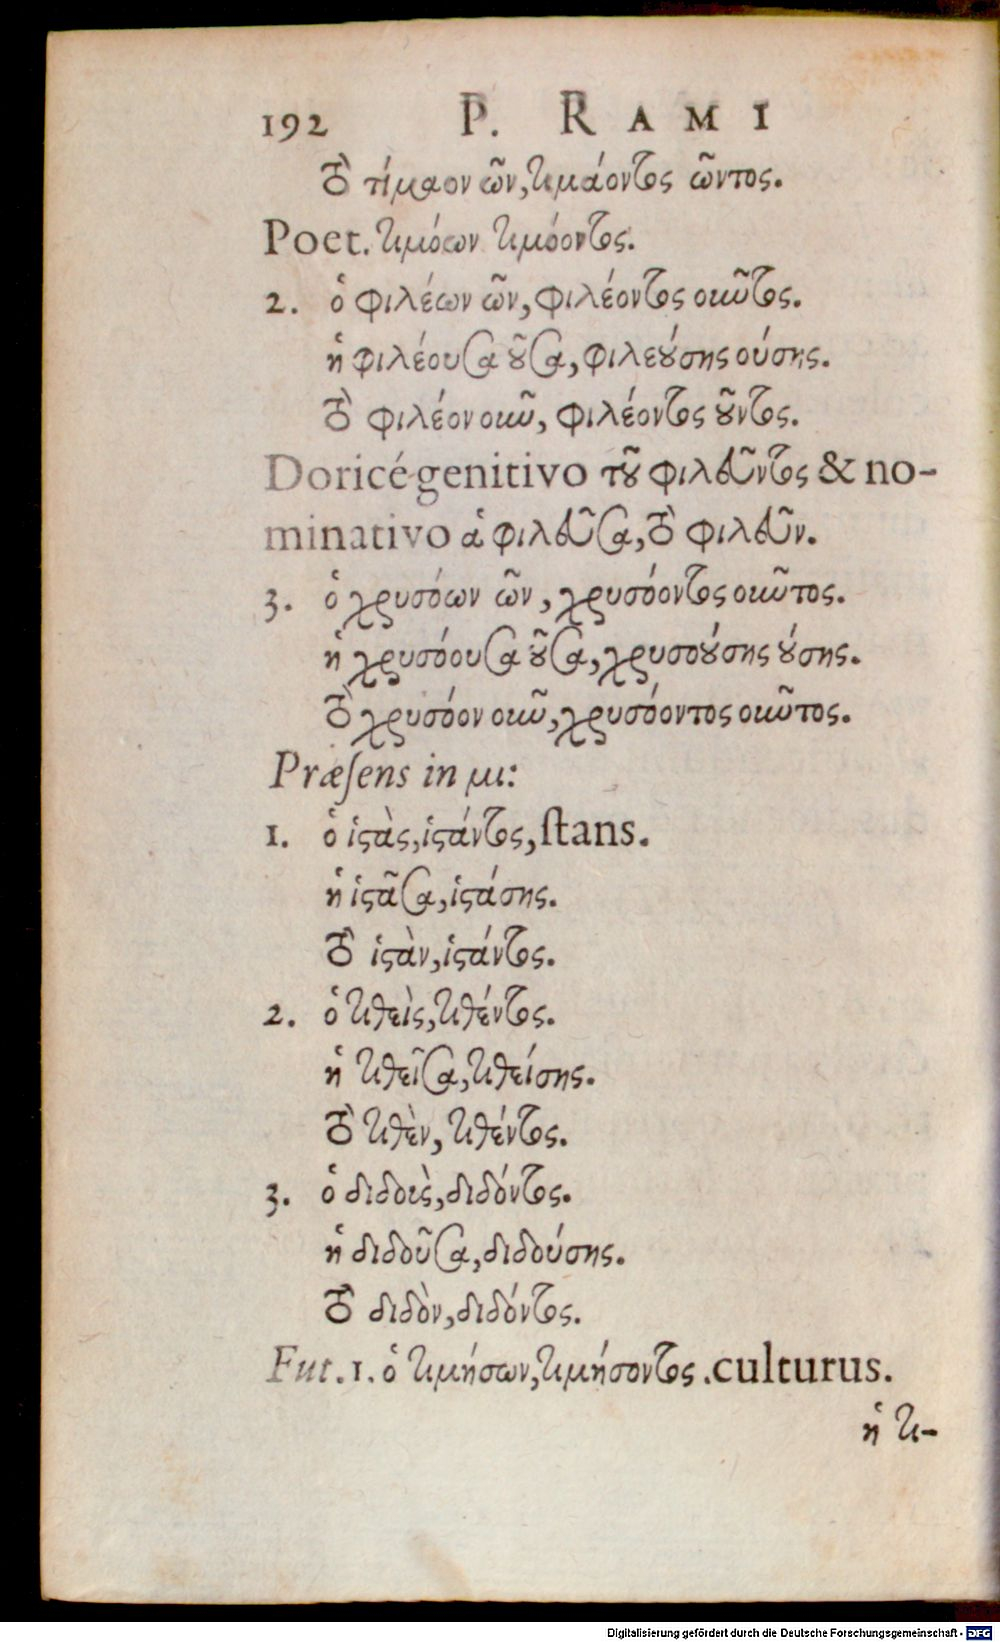 192 P. RAMI
τὸ τίμαον ῶν, τιμάοντος ῶντος.
Poet. τιμόων τιμόοντος.
2. ὁ φιλέων ῶν, φιλέοντος οιῶτος.
ἡ φιλέουσα οῦσα, φιλεούσης ούσης.
τὸ φιλέον οιῶ, φιλέοντος οῦντος.
Doricé genitivo τοῦ φιλεῦντος & no-
minativo ἁ φιλεῦσα, τὸ φιλεῦν.
3. ὁ χρυσόων ῶν, χρυσόοντος οιῶτος.
ἡ χρυσόουσα οῦσα, χρυσοούσης ούσης.
τὸ χρυσόον οιῶ, χρυσόοντος οιῶτος.
Præsens in μι:
1. ὁ ἱςὰς, ἱςάντος, stans.
ἡ ἱςᾶσα, ἱςάσης.
τὸ ἱςὰν, ἱςάντος.
2. ὁ τιθεὶς, τιθέντος.
ἡ τιθεῖσα, τιθείσης.
τὸ τιθὲν, τιθέντος.
3. ὁ διδοὺς, διδόντος.
ἡ διδοῦσα, διδούσης.
τὸ διδὸν, διδόντος.
Fut. 1. ὁ τιμήσων, τιμήσοντος. culturus.
ἡ τι-
Digitalisierung gefördert durch die Deutsche Forschungsgemeinschaft - DFG